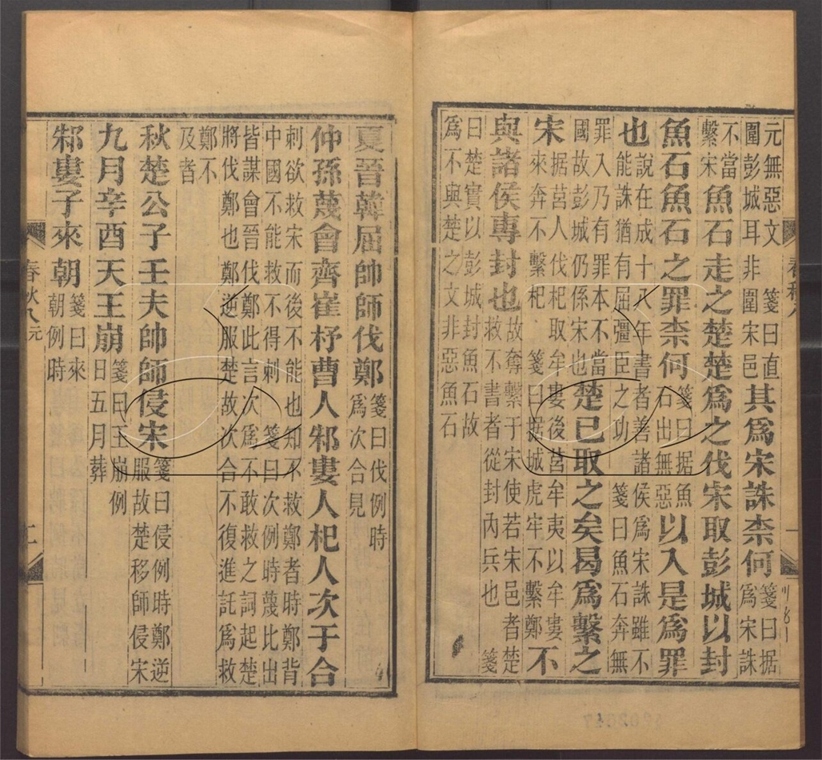 元無惡文　箋曰直
圍彭城耳非圍宋邑
其為宋誅柰何
箋曰据
為宋誅
不當
繫宋
魚石走之楚楚為之伐宋取彭城以封
魚石魚石之罪柰何
箋曰据魚
石出無惡
以入是為罪
也
說在成十八年書者善諸侯為宋誅雖不
能誅猶有屈彊臣之功　箋曰魚石奔無
罪入乃有罪本不當
國故彭城仍係宋也
楚已取之矣曷為繫之
宋
据莒人伐杞取牟婁後莒牟夷以牟婁
來奔不繫杞　箋曰据城虎牢不繫鄭
不
與諸侯專封也
故奪繫于宋使若宋邑者楚
救不書者從封內兵也　箋
曰楚實以彭城封魚石故
為不與楚之文非惡魚石
夏晉韓屈帥師伐鄭
箋曰伐例時
為次合見
仲孫蔑會齊崔杼曹人邾婁人杞人次于合
刺欲救宋而後不能也知不救鄭者時鄭背
中國不能救不得刺　箋曰次例時蔑比出
皆謀會晉伐鄭此言次為不敢救之詞起楚
將伐鄭也鄭逆服楚故次合不復進託為救
鄭不
及者
秋楚公子壬夫帥師侵宋
箋曰侵例時鄭逆
服故楚移師侵宋
九月辛酉天王崩
箋曰王崩例
日五月葬
邾婁子來朝
箋曰來
朝例時
春秋八 元